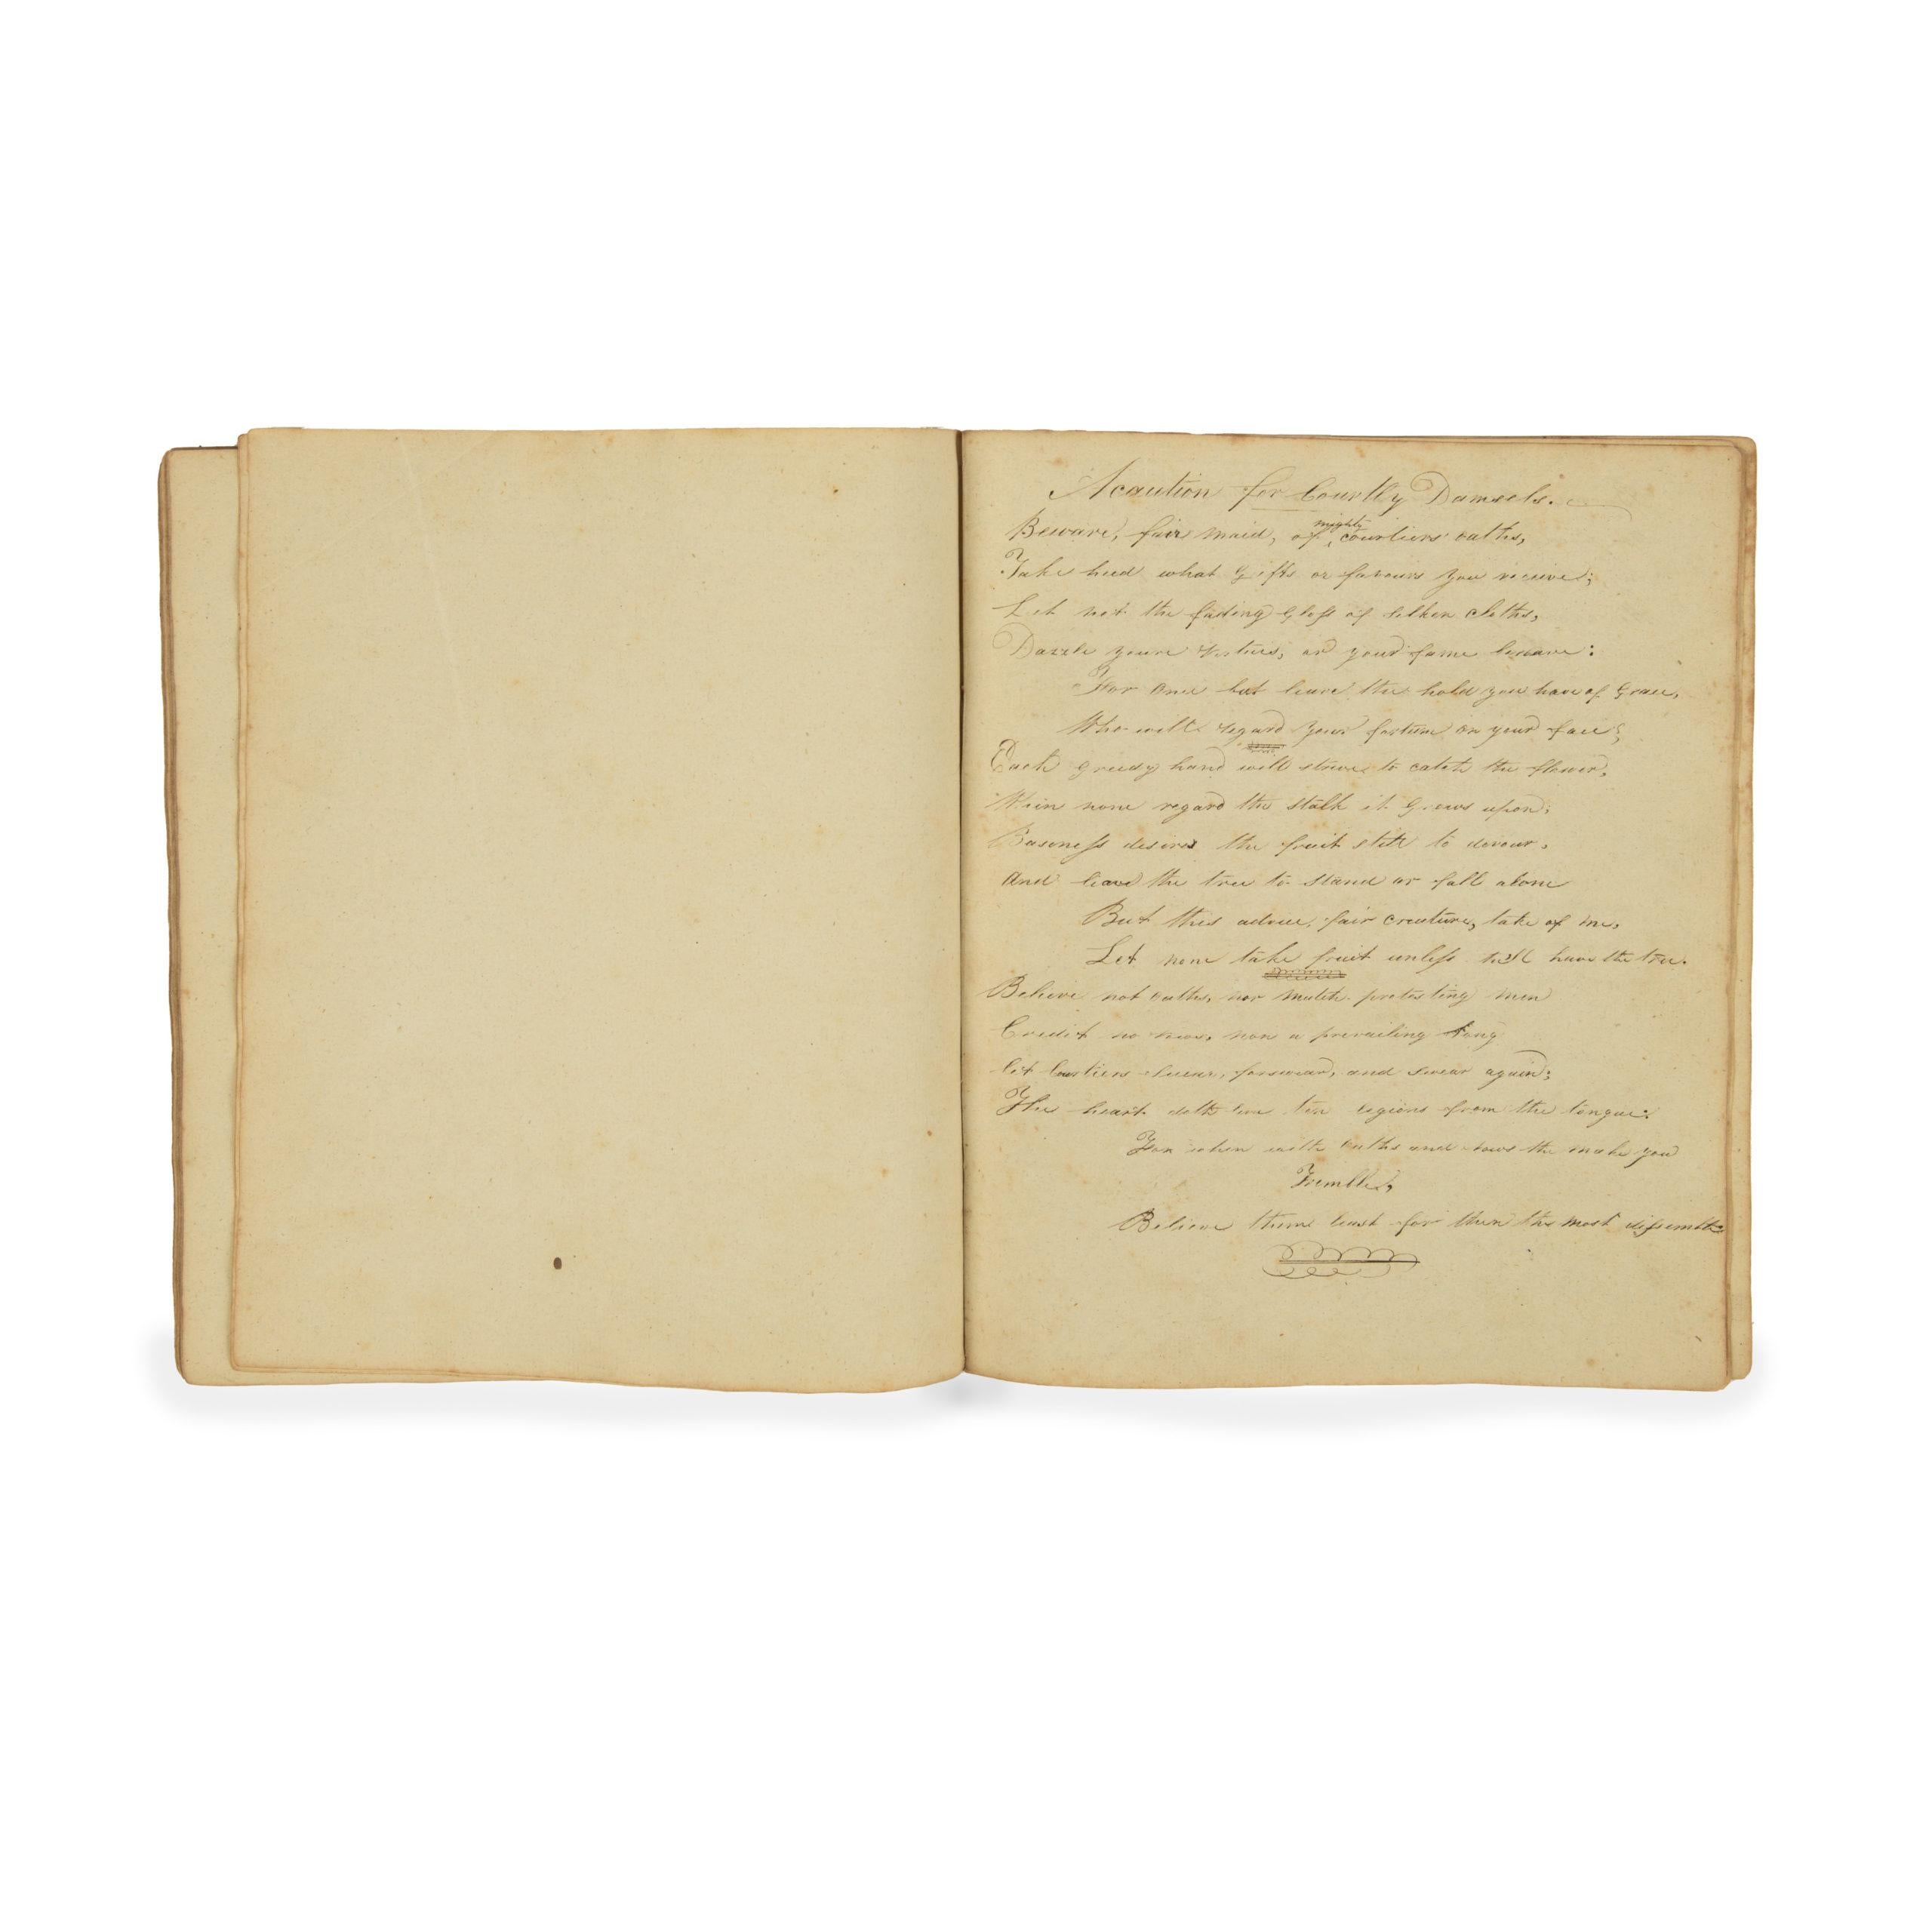 A caution for Courtly Damsels.
Beware, fair maid, of mighty courtiers' oaths,
Take heed what Gifts or favours you receive;
Let not the fading Gloss of silken cloths,
Dazzle youre vertues, or your fame bereave:
For once but leave the hold you have of Grace,
Who will regard your fortune or your face;
Each greedy hand will strive to catch the flower,
When none regard the stalk it Grows upon;
Baseness desires the fruit still to devour,
And leave the tree to stand or fall alone
But this advice, fair creature, take of me,
Let none take fruit unless he'll have the tree.
Believe not oaths, nor mutch protesting men
Credit no vows, non a prevailing Song
let Courtiers swear, forswear, and swear again;
The heart doth live ten legions from the tongue:
For when with oaths and vows the make you
Tremble,
Believe them least for then the most dissemble